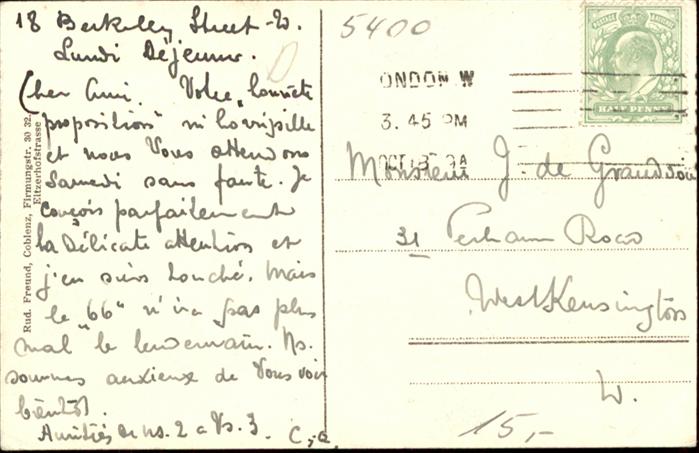 18 Berkeley Street-W.
Lundi Déjeuner.
Cher Ami. Votre "honnête
proposition" m'horripille
et nous Vous attendons
Samedi sans faute. Je
conçois parfaitement
la Délicate attention et
j'en suis touché. Mais
le "66" n'ira pas plus
mal le lendemain. Ns.
sommes anxieux de Vous voir
bientôt.
Amitiés de ns. 2 a Vs. 3.
Rud. Freund, Coblenz, Firmungstr. 30 32.
Eltzerhofstrasse
5400
POSTAGE & REVENUE
HALF PENNY
ONDON.W
3.45 PM
OCT
Monsieur J. de
31 Perham Road
West Kensington
W.
15,-